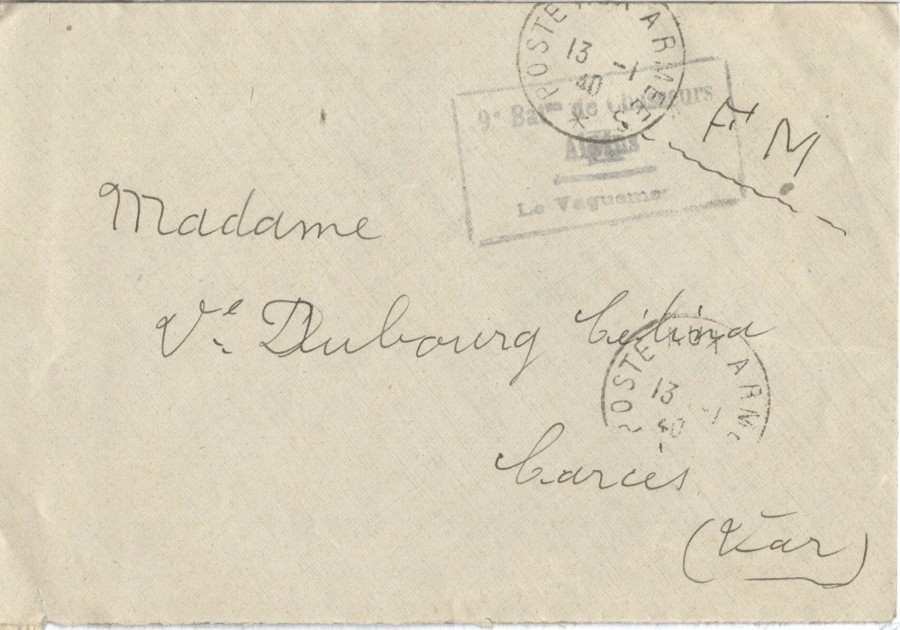 POSTE AUX ARMÉES
13 -1
40
*
9e Baton de Chasseurs
Alpins
Le Vaguemes
F M
Madame
Ve Dubourg Célina
POSTE AUX ARM
13 -1
40
Carcès
(Var)